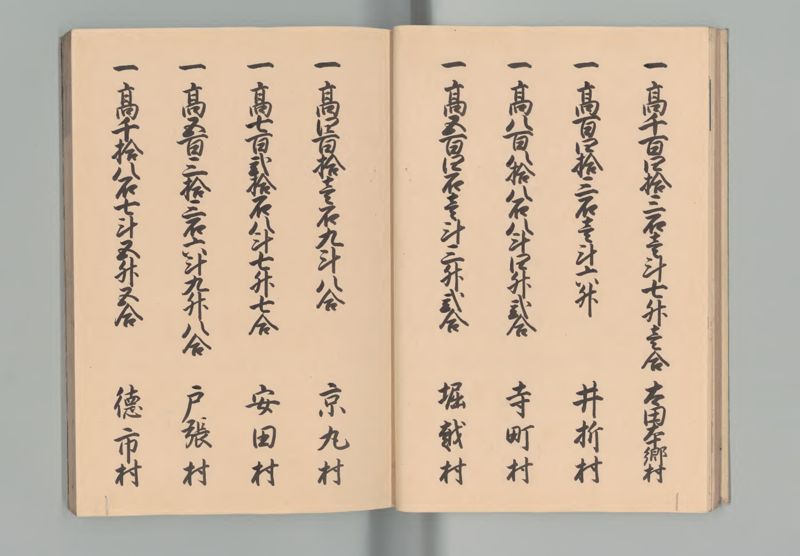 一 高千百四拾三石壱斗七升壱合 太田本郷村
一 高百四拾三石壱斗六升 井折村
一 高八百八拾八石八斗四升弐合 寺町村
一 高五百四石壱斗三升弐合 堀戟村
一 高四百拾壱石九斗八合 京丸村
一 高七百弐拾石八斗七升七合 安田村
一 高五百三拾三石六斗九升八合 戸張村
一 高千拾八石七斗五升五合 徳市村